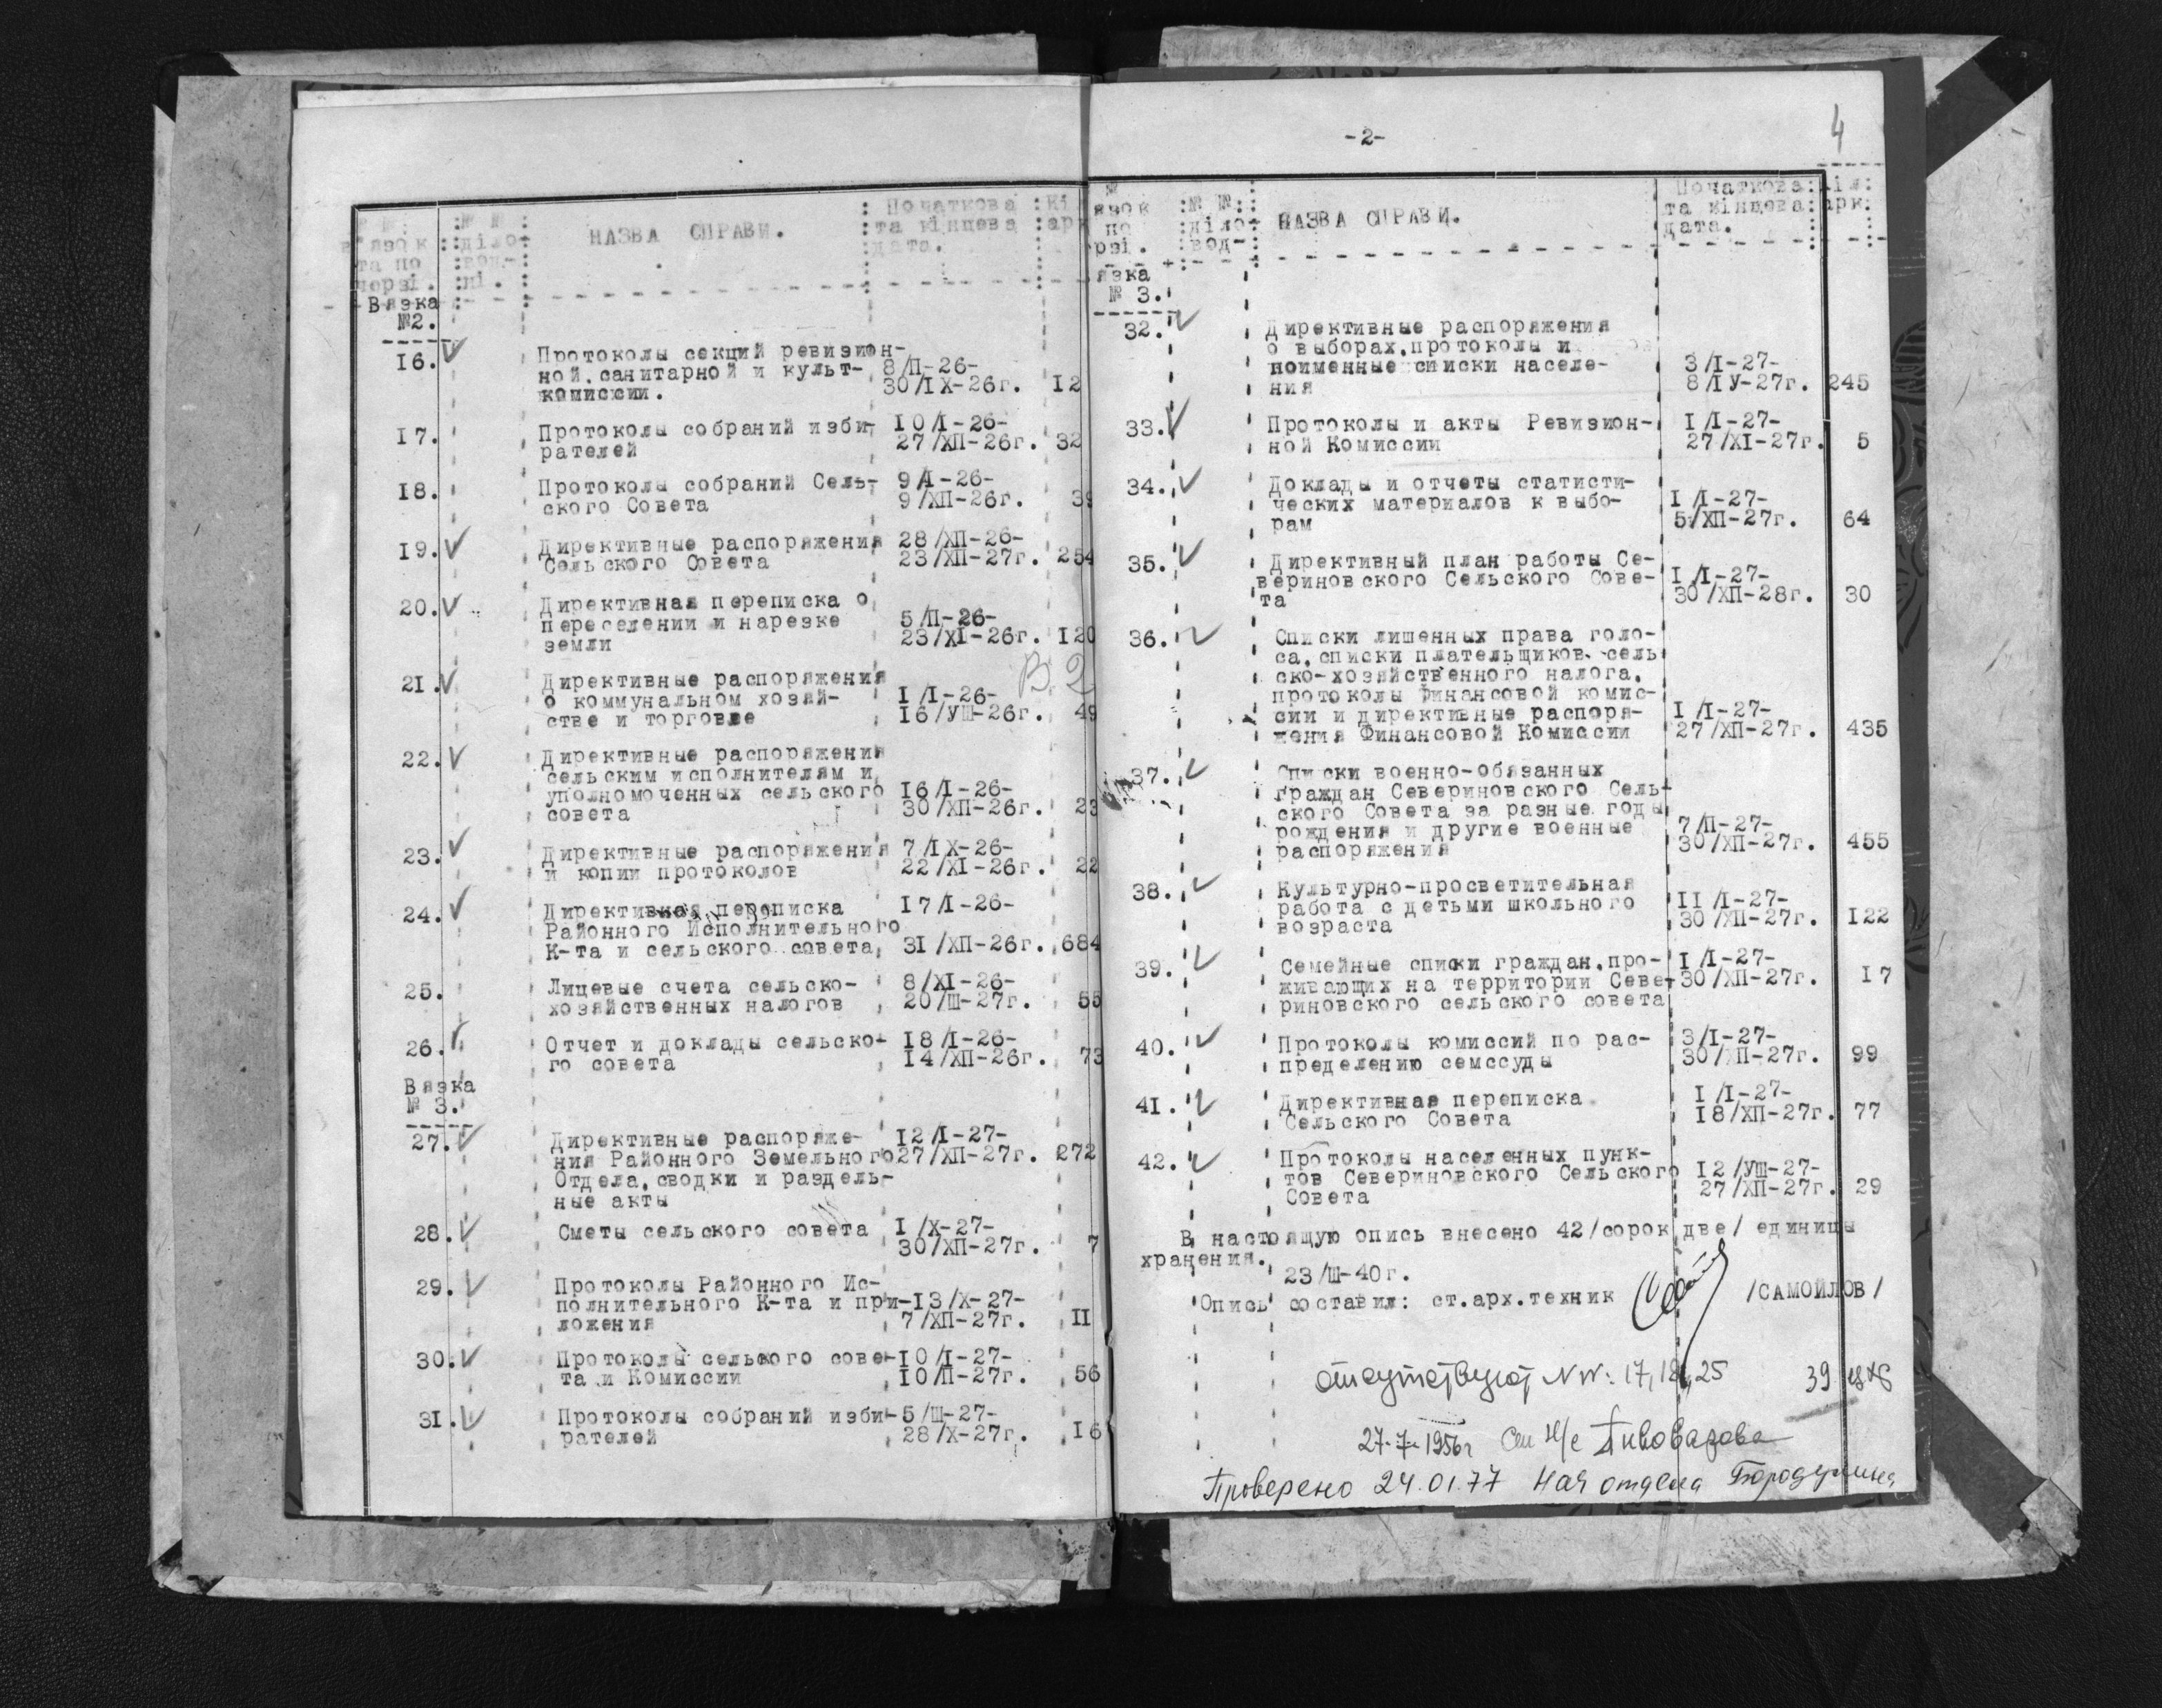 № №
в'язок
та по
черзі.
№ №
діло-
вод-
ні.
НАЗВА СПРАВИ.
Початкова
та кінцева
дата.
Кі
арк
Вязка
№2.
16. Протоколы секций ревизион-
ной, санитарной и культ- 8/П-26-
комиссии. 30/IX-26г. 12
17. Протоколы собраний изби- 10/I-26-
рателей 27/ХП-26г. 32
18. Протоколы собраний Сель- 9/I-26-
ского Совета 9/ХП-26г. 39
19. Директивные распоряжения 28/ХП-26-
Сельского Совета 23/ХП-27г. 254
20. Директивная переписка о
переселении и нарезке 5/П-26-
земли 23/XI-26г. 120
В 2
21. Директивные распоряжения
о коммунальном хозяй- I/I-26-
стве и торговле 16/УШ-26г. 49
22. Директивные распоряжения
сельским исполнителям и
уполномоченных сельского 16/I-26-
совета 30/ХП-26г. 23
23. Директивные распоряжения 7/IX-26-
и копии протоколов 22/XI-26г. 22
24. Директивная переписка 17/I-26-
Районного Исполнительного
К-та и сельского совета 31/ХП-26г. 684
25. Лицевые счета сельско- 8/XI-26-
хозяйственных налогов 20/Ш-27г. 55
26. Отчет и доклады сельско- 18/I-26-
го совета 14/ХП-26г. 73
Вязка
№ 3.
27. Директивные распоряже- 12/I-27-
ния Районного Земельного 27/ХП-27г. 272
Отдела, сводки и раздель-
ные акты
28. Сметы сельского совета I/X-27-
30/ХП-27г. 7
29. Протоколы Районного Ис-
полнительного К-та и при- 13/X-27-
ложения 7/ХП-27г. II
30. Протоколы сельского сове- 10/I-27-
та и Комиссии 10/П-27г. 56
31. Протоколы собраний изби- 5/Ш-27-
рателей 28/X-27г. 16
-2-
4
№
язок
по
рзі.
№ №
діло-
вод-
НАЗВА СПРАВИ.
Початкова
та кінцева
дата.
іл
арк
язка
№ 3.
32. Директивные распоряжения
о выборах, протоколы и
поименные списки населе- 3/I-27-
ния 8/IУ-27г. 245
33. Протоколы и акты Ревизион- I/I-27-
ной Комиссии 27/XI-27г. 5
34. Доклады и отчеты статисти-
ческих материалов к выбо- I/I-27-
рам 5/ХП-27г. 64
35. Директивный план работы Се-
вериновского Сельского Сове- I/I-27-
та 30/ХП-28г. 30
36. Списки лишенных права голо-
са, списки плательщиков сель
ско-хозяйственного налога,
протоколы Финансовой комис-
сии и директивные распоря- I/I-27-
жения Финансовой Комиссии 27/ХП-27г. 435
37. Списки военно-обязанных
граждан Севериновского Сель-
ского Совета за разные годы
рождения и другие военные 7/П-27-
распоряжения 30/ХП-27г. 455
38. Культурно-просветительная
работа с детьми школьного II/I-27-
возраста 30/ХП-27г. 122
39. Семейные списки граждан, про- I/I-27-
живающих на территории Севе- 30/ХП-27г. 17
риновского сельского совета
40. Протоколы комиссий по рас- 3/I-27-
пределению семссуды 30/ХП-27г. 99
41. Директивная переписка I/I-27-
Сельского Совета 18/ХП-27г. 77
42. Протоколы населенных пунк-
тов Севериновского Сельского 12/УШ-27-
Совета 27/ХП-27г. 29
В настоящую опись внесено 42/сорок две/ единицы
хранения.
23/Ш-40г.
Опись составил: ст.арх.техник /САМОЙЛОВ/
отсутствуют NN: 17, 18, 25 39
27-7-1956г Пивоварова
Проверено 24.01.77 Нач отдела Бородулина